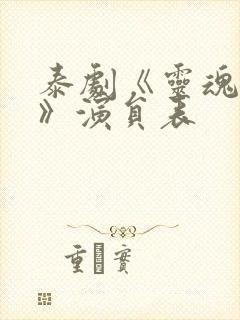 泰劇《靈魂
》演員表
重 實